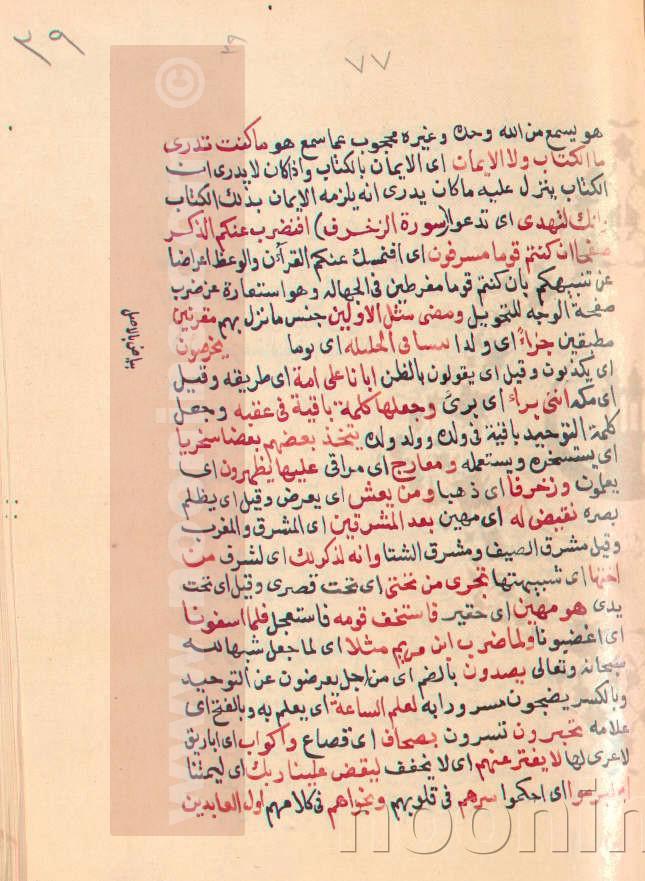 ٣٩
٣٩
٧٧
هو يسمع من الله وحده وغيره محجوب عما سمع هو ما كنت تدرى
ما الكتاب ولا الايمان اى الايمان بالكتاب واذا كان لا يدرى ان
الكتاب ينزل عليه ما كان يدرى انه يلزمه الايمان بذلك الكتاب
وانك لتهدى اى تدعوا (سورة الزخرف) افنضرب عنكم الذكر
صفحا ان كنتم قوما مسرفون اى افنمسك عنكم القرآن والوعظ اعراضا
عن تنبيهكم بان كنتم قوما مفرطين فى الجهاله وهو استعارة عن ضرب
صفحة الوجه للتحويل ومضى مثل الاولين جنس ما نزل بهم مقرنين
مطبقين جزاءً اى ولدا اى يوما يخرصون
اى يكذبون وقيل اى يقولون بالظن ابانا على امة اى طريقه وقيل
اى مكه اننى براء اى برئ وجعلها كلمة باقية فى عقبه وجعل
كلمة التوحيد باقية فى ولده وولد ولده يتخذ بعضهم بعضا سخريا
اى يستسخره ويستعمله ومعارج اى مراقى عليها يظهرون اى
يعلون وزخرفا اى ذهبا ومن يعش اى يعرض وقيل اى يظلم
بصره نقيض له اى مهين بعد المشرقين اى المشرق والمغرب
وقيل مشرق الصيف ومشرق الشتا وانه لذكر لك اى لشرف من
اختها اى شبيهتها تجرى من تحتى اى تحت قصرى وقيل اى تحت
يدى هو مهين اى حقير فاستخف قومه فاستعجل فلما اسفونا
اى اغضبونا ولما ضرب ابن مريم مثلا اى لما جعل شبها لله
سبحانه وتعالى يصدون بالضم اى من اجل يعرضون عن التوحيد
وبالكسر يضجون سرورا به لعلم الساعة اى يعلم به وبالفتح اى
علامه تحبرون تسرون بصحاف اى قصاع واكواب اى اباريق
لا عرى لها لا يفتر عنهم اى لا يخفف ليقض علينا ربك اى ليمتنا
ابرموا اى احكموا سرهم فى قلوبهم ونجواهم فى كلامهم اول العابدين
بياض بالاصل
©
www.noorin
noorin